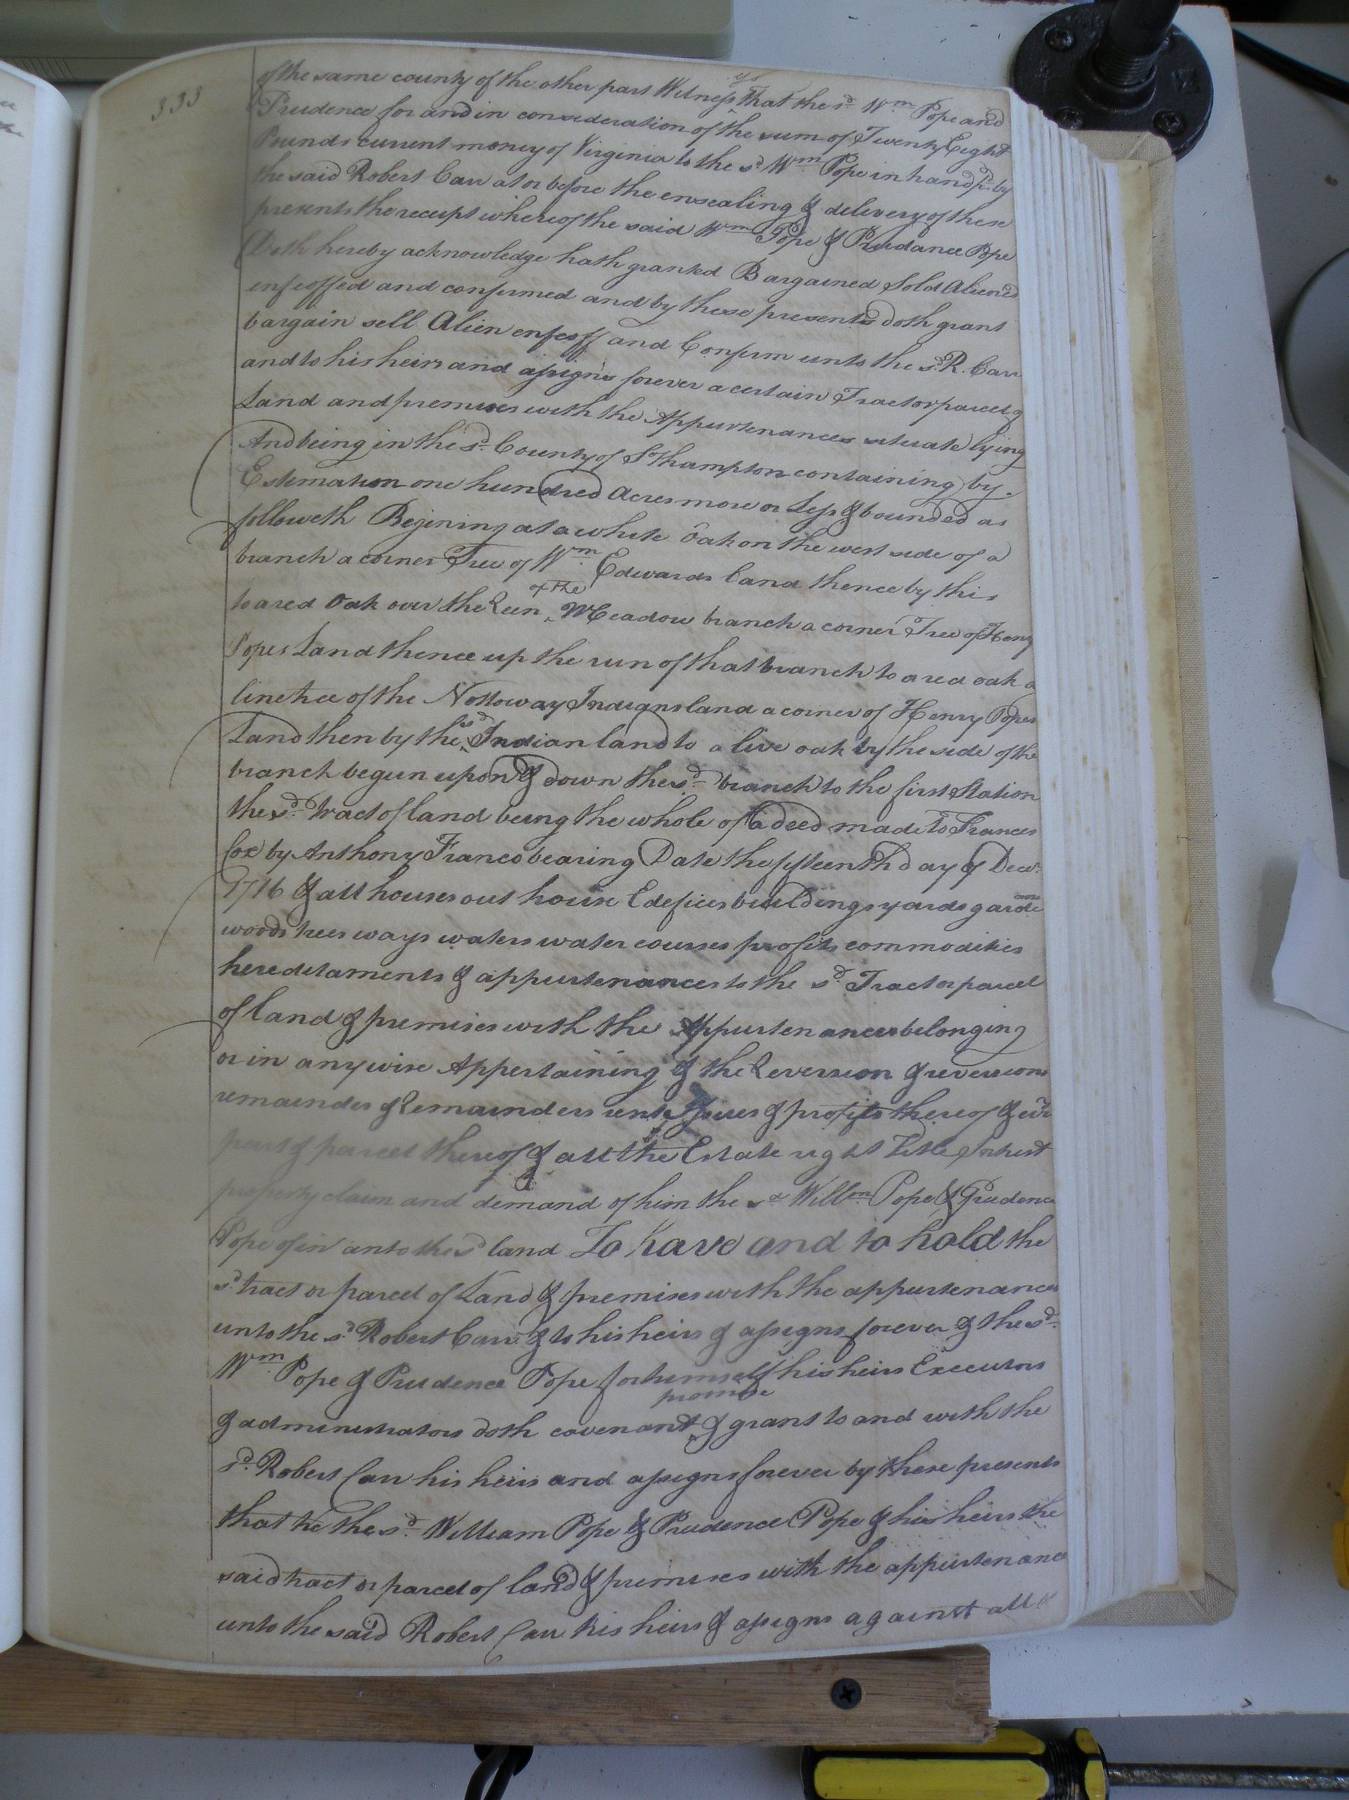 333
of the same county of the other part Witnesseth That the sd. Wm. Pope and
Prudence for and in consideration of the sum of Twenty Eight
Pounds current money of Virginia to the sd. Wm. Pope in hand pd. by
the said Robert Carr at or before the ensealing & delivery of these
presents the receipt whereof the said Wm. Pope & Prudance Pope
doth hereby acknowledge hath granted Bargained Sold Aliened
enfeoffed and confirmed and by these presents doth grant
bargain sell Alien enfeoff and Confirm unto the sd. R. Carr
and to his heirs and assigns forever a certain Tract or parcel of
Land and premises with the Appurtenances situate lying
And being in the sd. County of Sthampton containing by
Estimation one hundred Acres more or Less & bounded as
followeth Begining at a white Oak on the west side of a
branch a corner Tree of Wm. Edwards land thence by this
to a red Oak over the Reen of the Meadow branch a corner Tree of Henry
Popes Land thence up the run of that branch to a red oak a
line tree of the Nottoway Indians land a corner of Henry Popes
Land then by the sd. Indian land to a live oak by the side of the
branch begun upon & down the sd. branch to the first Station
the sd. tract of land being the whole of a deed made to Frances
Cox by Anthony Franco bearing Date the fifteenth day of Decr.
1716 & all houses out house Edefices buildings yards gardens
woods trees ways waters water courses profits commodities
hereditaments & appurtenances to the sd. Tract or parcel
of land & premises with the Appurtenances belonging
or in any wise Appertaining & the Reversion & reversions
remainder & Remainders rents Issues & profits thereof & evr.
part & parcel thereof & all the Estate right Title Interest
property claim and demand of him the sd. Willm. Pope & Prudence
Pope of in unto the sd. land To have and to hold the
sd. tract or parcel of Land & premises with the appurtenances
unto the sd. Robert Carr & to his heirs & assigns forever & the sd.
Wm. Pope & Prudence Pope for himself his heirs Executors
& administrators doth covenant promise & grant to and with the
sd. Robert Carr his heirs and assigns forever by these presents
that he the sd. William Pope & Prudence Pope & his heirs the
said tract or parcel of land & premises with the appurtenances
unto the said Robert Carr his heirs & assigns against all